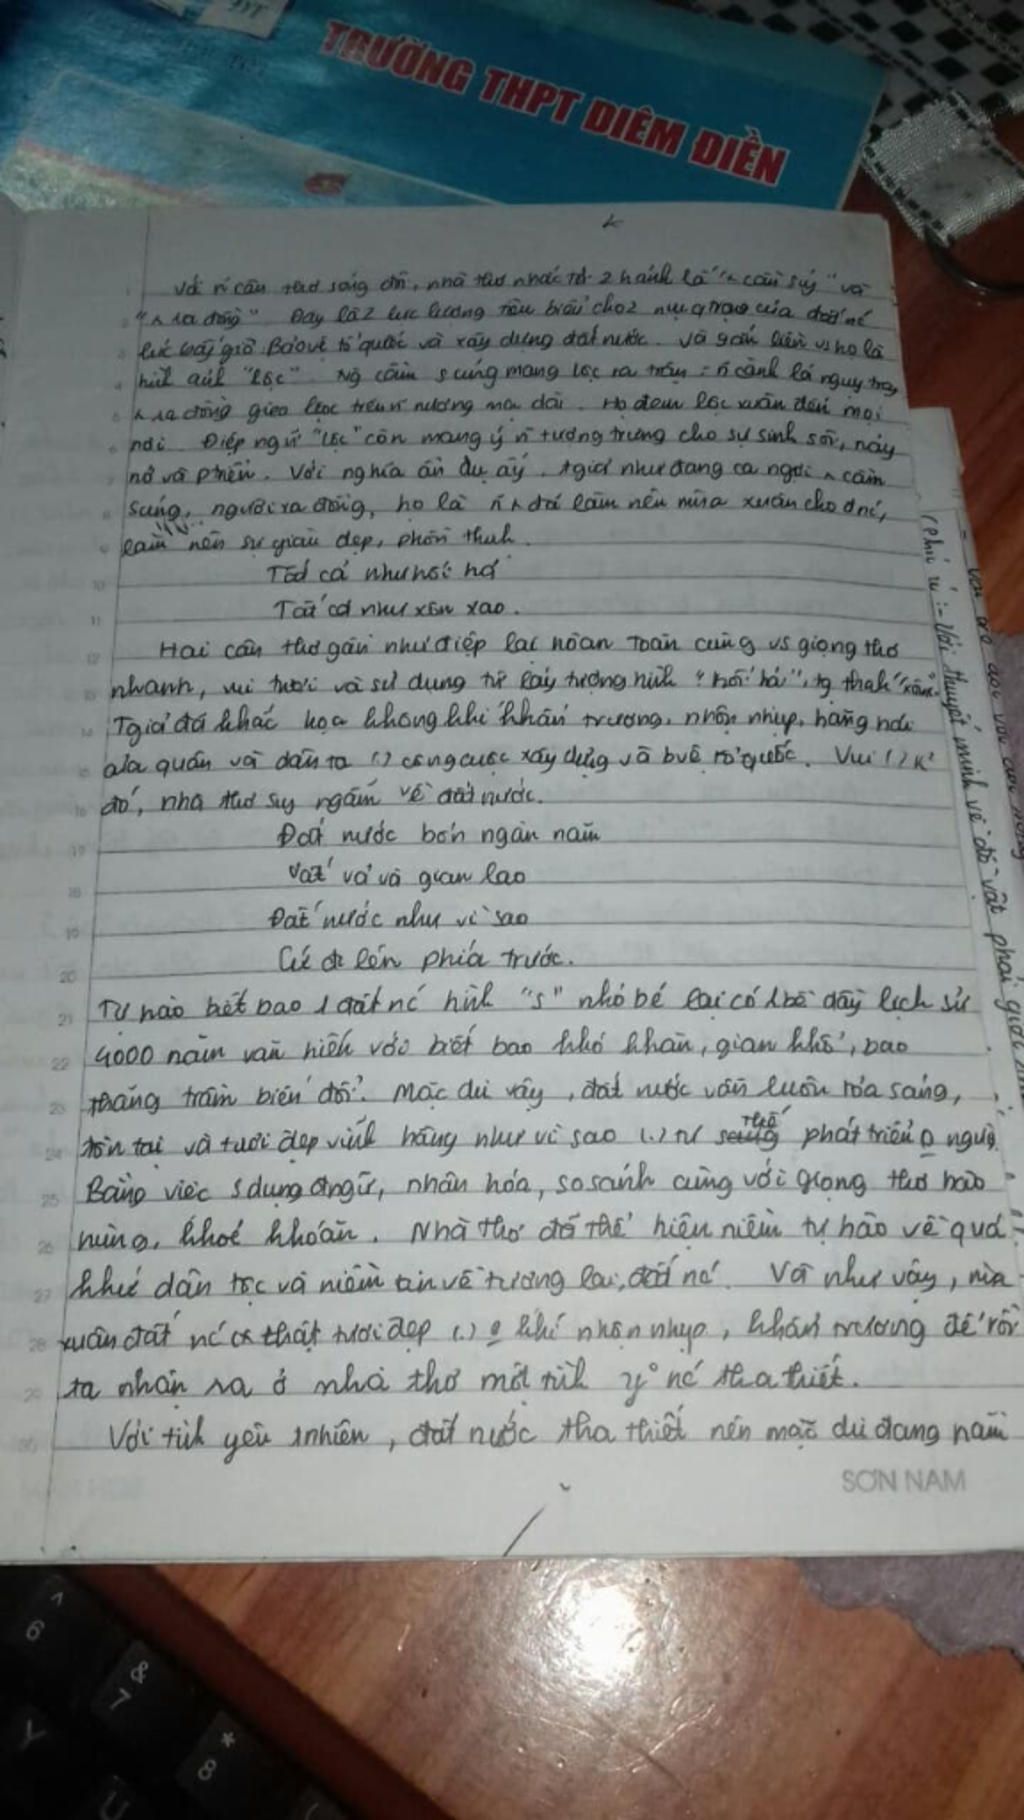 TRƯỜNG THPT DIÊM ĐIỀN
Với n câu thơ sóng đôi, nhà thơ nhắc tới 2 h ảnh là "ʌ cầm súng" và
"ʌ ra đồng" Đây là 2 lực lượng tiêu biểu cho 2 của đất nc
lúc bấy giờ. Bảo vệ tổ quốc và xây dựng đất nước. Và gắn liền vs họ là
hình ảnh "lộc". Ng cầm súng mang lộc ra trận = n cành lá nguy trang
ʌ ra đồng gieo lộc trên n nương mạ dài. Họ đem lộc xuân đến mọi
nơi. Điệp ngữ "lộc" còn mang ý n tượng trưng cho sự sinh sôi, nảy
nở và ptriển. Với nghĩa ẩn dụ ấy. tgiả như đang ca ngợi ʌ cầm
súng, người ra đồng, họ là n ʌ đã làm nên mùa xuân cho đnc,
làm nên sự giàu đẹp, phồn thịnh.
Tất cả như hối hả
Tất cả như xôn xao.
Hai câu thơ gần như điệp lại hoàn toàn cùng vs giọng thơ
nhanh, vui tươi và sử dụng từ láy tượng hình "hối hả", tg thanh "xôn
Tgiả đã khắc họa không khí khẩn trương, nhộn nhịp, hăng hái
của quân và dân ta (.) công cuộc xây dựng và bvệ tổ quốc. Vui (.) k²
đó, nhà thơ suy ngẫm về đất nước.
Đất nước bốn ngàn năm
Vất vả và gian lao
Đất nước như vì sao
Cứ đi lên phía trước.
Tự hào biết bao 1 đất nc hình "S" nhỏ bé lại có 1 bề dày lịch sử
4000 năm văn hiến với biết bao khó khăn, gian khổ, bao
thăng trầm biến đổi. Mặc dù vậy, đất nước vẫn luôn tỏa sáng,
tồn tại và tươi đẹp vĩnh hằng như vì sao (.) phát triển o ngừng.
Bằng việc s dụng đngữ, nhân hóa, so sánh cùng với giọng thơ hào
hùng, khoẻ khoắn. Nhà thơ đã thể hiện niềm tự hào về quá
khứ dân tộc và niềm tin về tương lai, đất nc. Và như vậy, mùa
xuân đất nc thật tươi đẹp (.) khí nhộn nhịp, khẩn trương để rồi
ta nhận ra ở nhà thơ một tình y° nc tha thiết.
Với tình yêu tnhiên, đất nước tha thiết nên mặc dù đang nằm
SƠN NAM
- Với thuyết minh về đồ vật phải giới
^
6
&
7
*
8
Y
U